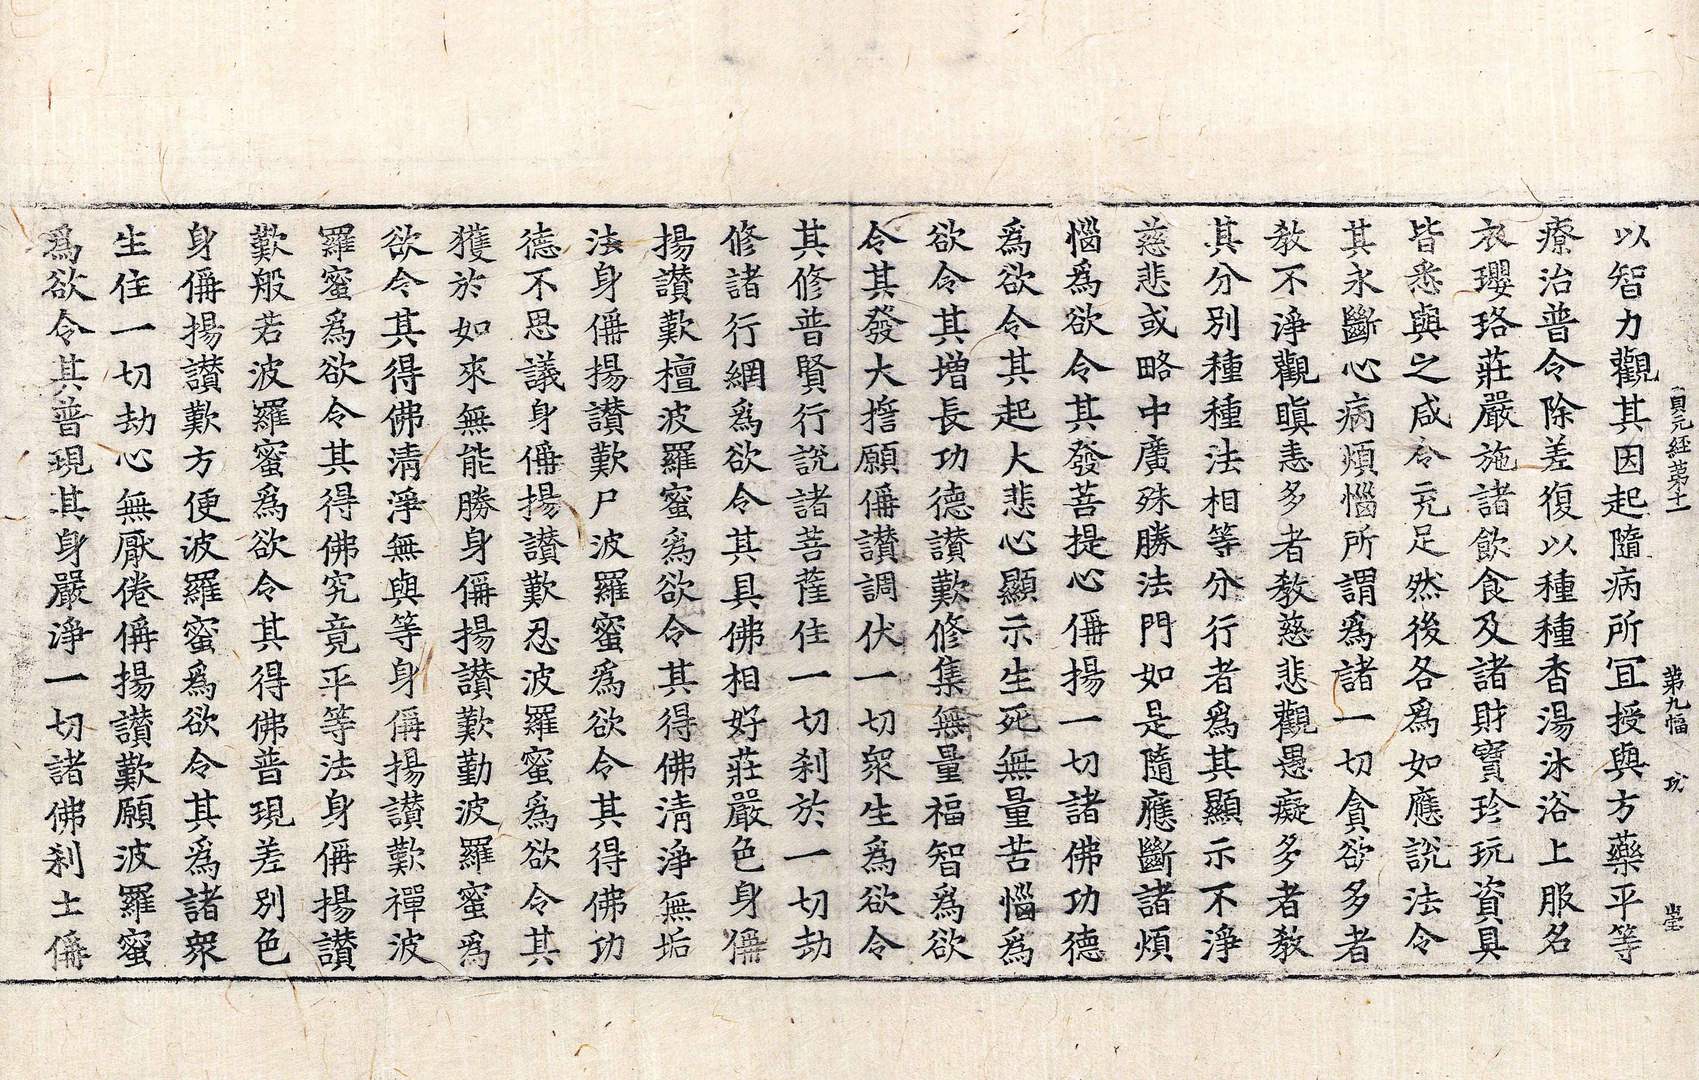 貞元經第十一　第九幅　玏　崇
以智力觀其因起隨病所冝授與方藥平等
療治普令除差復以種種香湯沐浴上服名
衣瓔珞莊嚴施諸飲食及諸財寶珍玩資具
皆悉與之咸令充足然後各爲如應說法令
其永斷心病煩惱所謂爲諸一切貪欲多者
教不淨觀瞋恚多者教慈悲觀愚癡多者教
其分別種種法相等分行者爲其顯示不淨
慈悲或略中廣殊勝法門如是隨應斷諸煩
惱爲欲令其發菩提心偁揚一切諸佛功德
爲欲令其起大悲心顯示生死無量苦惱爲
欲令其增長功德讃歎修集無量福智爲欲
令其發大擔願偁讃調伏一切衆生爲欲令
其修普賢行說諸菩薩住一切刹於一切劫
修諸行網爲欲令其具佛相好莊嚴色身偁
揚讃歎檀波羅蜜爲欲令其得佛清淨無垢
法身偁揚讃歎尸波羅蜜爲欲令其得佛功
德不思議身偁揚讃歎忍波羅蜜爲欲令其
獲於如來無能勝身偁揚讃歎勤波羅蜜爲
欲令其得佛清淨無與等身偁揚讃歎禪波
羅蜜爲欲令其得佛究竟平等法身偁揚讃
歎般若波羅蜜爲欲令其得佛普現差別色
身偁揚讃歎方便波羅蜜爲欲令其爲諸衆
生住一切劫心無厭倦偁揚讃歎願波羅蜜
爲欲令其普現其身嚴淨一切諸佛刹土偁